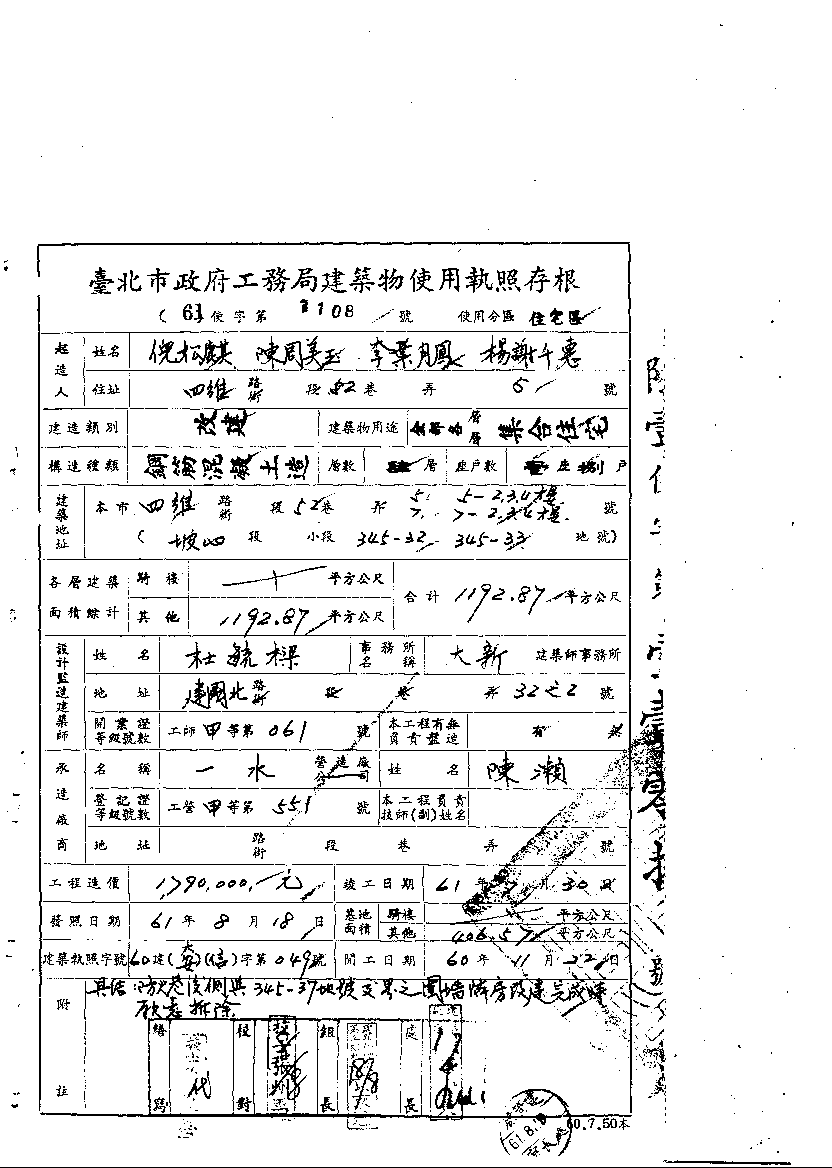 臺北市政府工務局建築物使用執照存根
(61使字第1108號 使用分區 住宅區
起造人 姓名 倪松麒 陳周美玉 李葉月鳳 楊謝千惠
住址 四維路街 段52巷 弄 5 號
建造類別 改建 建築物用途 全部各層層 集合住宅
構造種類 鋼筋混凝土造 層數 層 座戶數 座捌戶
建築地址 本市 四維路街 段52巷 弄 5. 5-2.3.4樓 7. 7-2.3.4樓 號
( 坡心 段 小段 345-32 345-33 地號)
各層建築面積總計 騎樓 平方公尺 合計 1192.87 平方公尺
其他 1192.87 平方公尺
設計監造建築師 姓名 杜毓樑 事務所名稱 大新 建築師事務所
地址 建國北路街 段 巷 弄 32之2 號
開業證等級號數 工師甲等第061號 本工程有無負責監造 有
承造廠商 名稱 一水 營造廠公司 姓名 陳瀬
登記證等級號數 工營甲等第551號 本工程負責技師(副)姓名
地址 路街 段 巷 弄 號
工程造價 1,790,000,-元 竣工日期 61年7月30日
發照日期 61年8月18日 基地面積 騎樓 平方公尺
其他 406.57 平方公尺
建築執照字號 60建(大安)(信)字第049號 開工日期 60年11月22日
附註 具結 防火巷後側與345-37地號交界之圍牆
願意拆除
繕寫 校對 組長 處長
61.8.18
60.7.50本